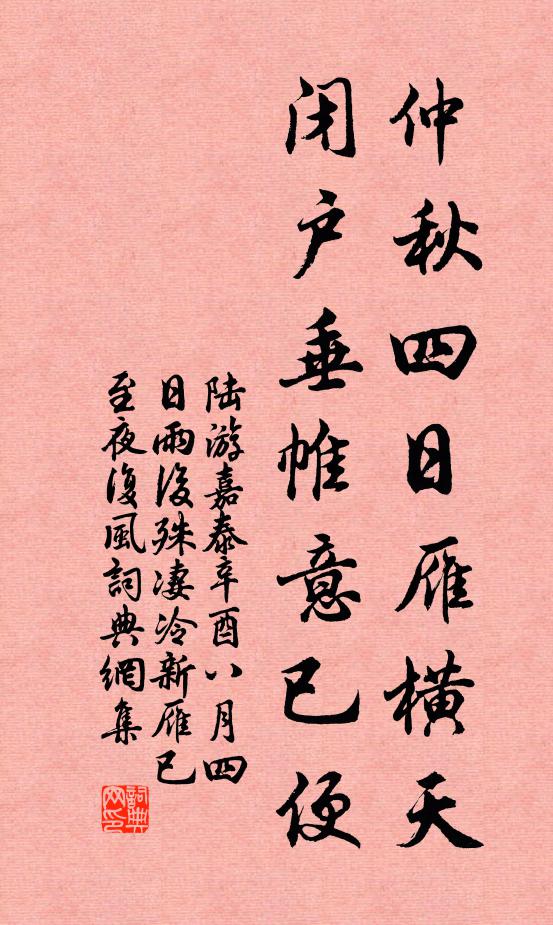 仲秋四日雁横天
闭户垂帷意已便
陆游嘉泰辛酉八月四
日雨後殊凄冷新雁已
至夜復風詞典網集
詞典网印